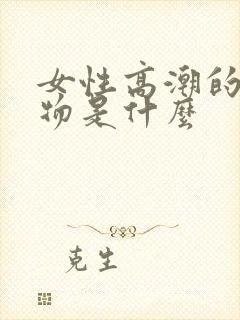 女性高潮的
物是什麼
克生